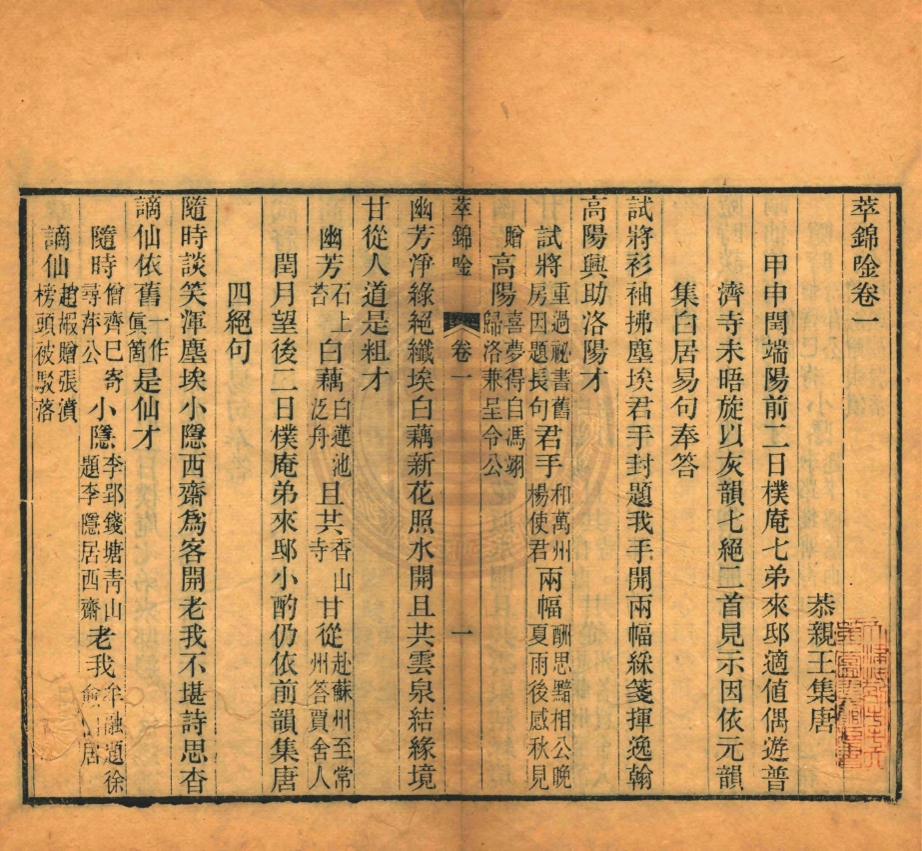 萃錦唫卷一
恭親王集唐
甲申閏端陽前二日樸庵七弟來邸適値偶遊普
濟寺未晤旋以灰韻七絕二首見示因依元韻
集白居易句奉答
試將衫袖拂塵埃君手封題我手開兩幅綵箋揮逸翰
高陽興助洛陽才
試將重過祕書舊房因題長句君手和萬州楊使君兩幅酬思黯相公晚夏雨後感秋見
贈高陽喜夢得自馮翊歸洛兼呈令公
萃錦唫 卷一 一
幽芳淨綠絕纖埃白藕新花照水開且共雲泉結緣境
甘從人道是粗才
幽芳石上苔白藕白蓮池泛舟且共香山寺甘從赴蘇州至常州答賈舍人
閏月望後二日樸庵弟來邸小酌仍依前韻集唐
四絕句
隨時談笑渾塵埃小隱西齋爲客開老我不堪詩思杳
謫仙依舊一作眞箇是仙才
隨時僧齊巳寄尋萍公小隱李郢錢塘青山題李隱居西齋老我牟融題徐俞居
謫仙趙嘏贈張濆榜頭被駁落